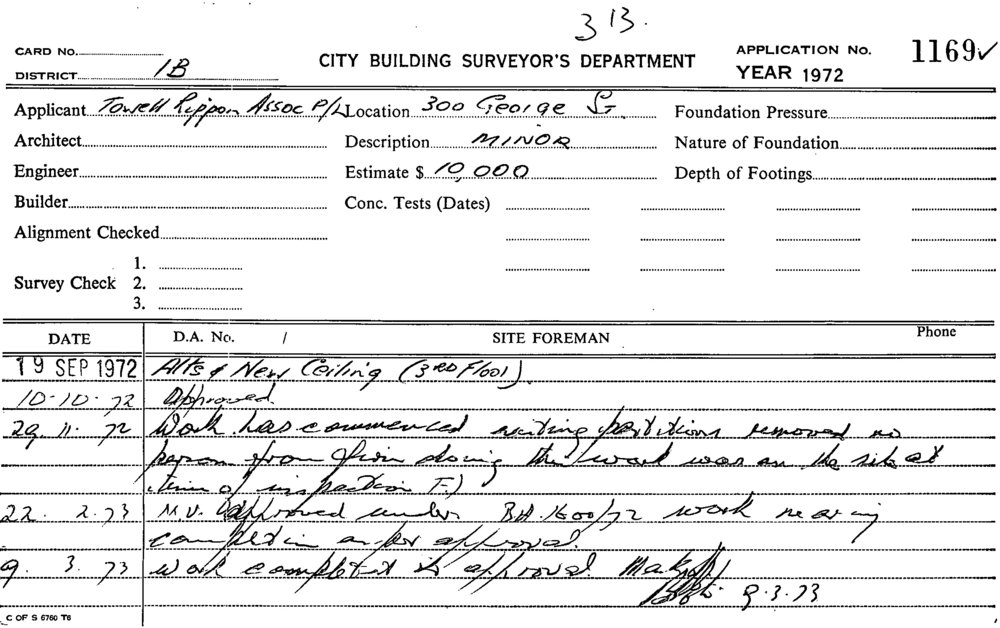 313.
CARD No.
DISTRICT 1B
CITY BUILDING SURVEYOR'S DEPARTMENT
APPLICATION No. 1169✓
YEAR 1972
Applicant Towell Rippon Assoc P/L Location 300 George St. Foundation Pressure
Architect Description MINOR Nature of Foundation
Engineer Estimate $ 10,000 Depth of Footings
Builder Conc. Tests (Dates)
Alignment Checked
Survey Check 1.
2.
3.
DATE D.A. No. / SITE FOREMAN Phone
19 SEP 1972 Alts & New Ceiling (3RD Floor).
10-10-72 Approved.
29.11.72 Work has commenced exiting partitions removed no
person from firm doing the work was on the site at
time of inspection F.)
22.2.73 M.V. Approved under BA.1600/72 work nearing
completion as per approval.
9.3.73 work completed to approval.
9.3.73
C OF S 6760 T6